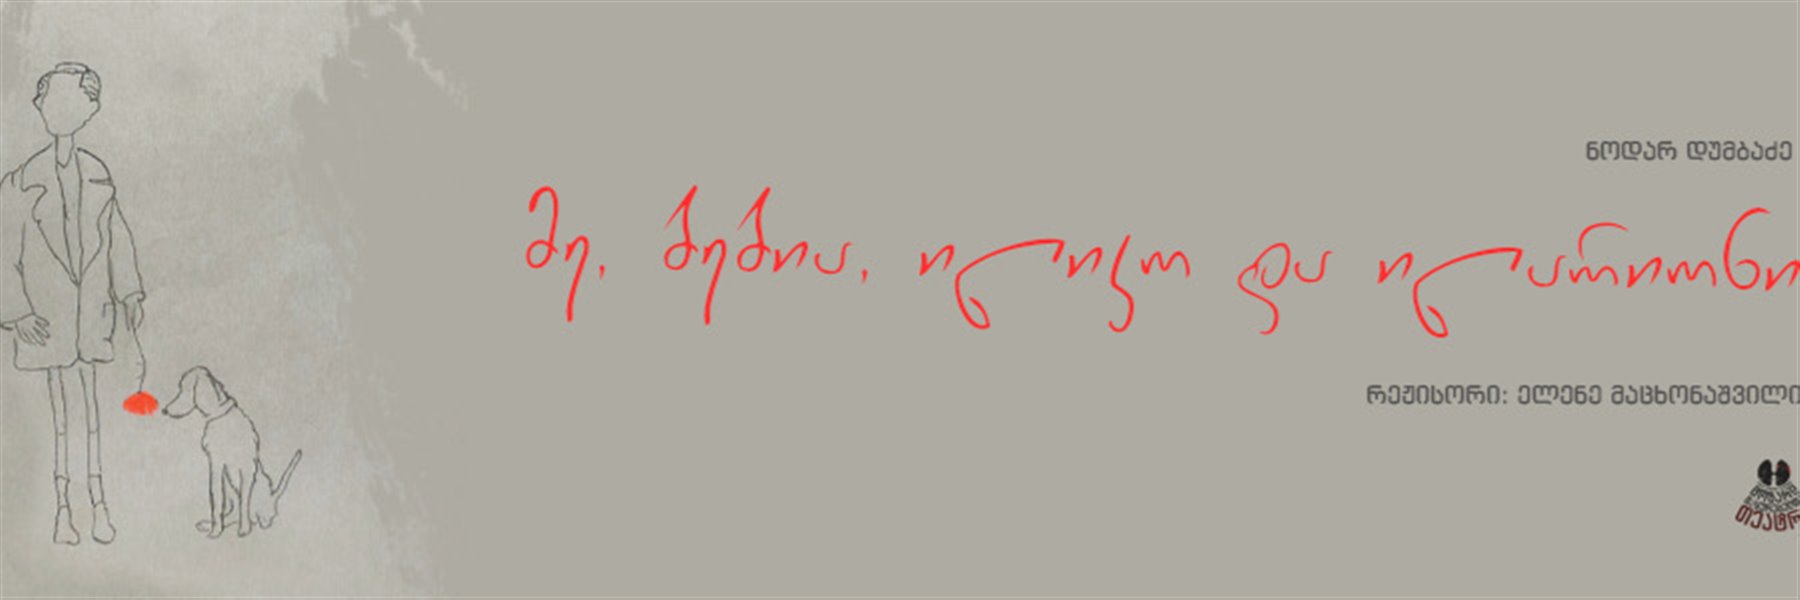 ნოდარ დუმბაძე
მე, ბებია, ილიკო და ილარიონი
რეჟისორი: ელენე მაცხონაშვილი
თეატრ